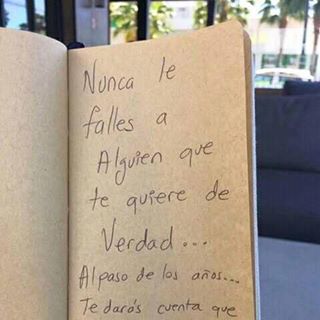 Nunca le
falles a
Alguien que
te quiere de
Verdad...
Al paso de los años...
Te darás cuenta que